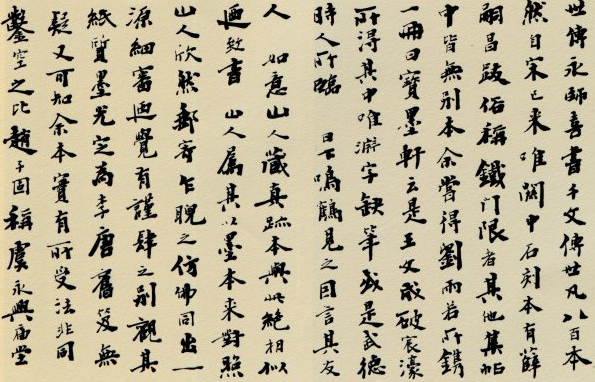 世傳永師喜書千文傳世凡八百本
然自宋已来唯關中石刻本有薛
嗣昌跋俗稱鐵门限者其他集帖
中皆無别本余嘗得劉雨若所鐫
一冊曰寶墨軒云是王文成破宸濠
所得其中唯淵字缺筆或是武德
時人所臨 日下鳴鶴見之因言其友
人 如意山人藏真跡本與此絕相似
迺致書 山人屬其以墨本来對照
山人欣然郵寄乍睨之仿佛同出一
源細審迺覺有謹肆之别觀其
紙質墨光定為李唐舊笈無
疑又可知余本實有所受法非同
鑿空之比趙子固稱虞永興庙堂